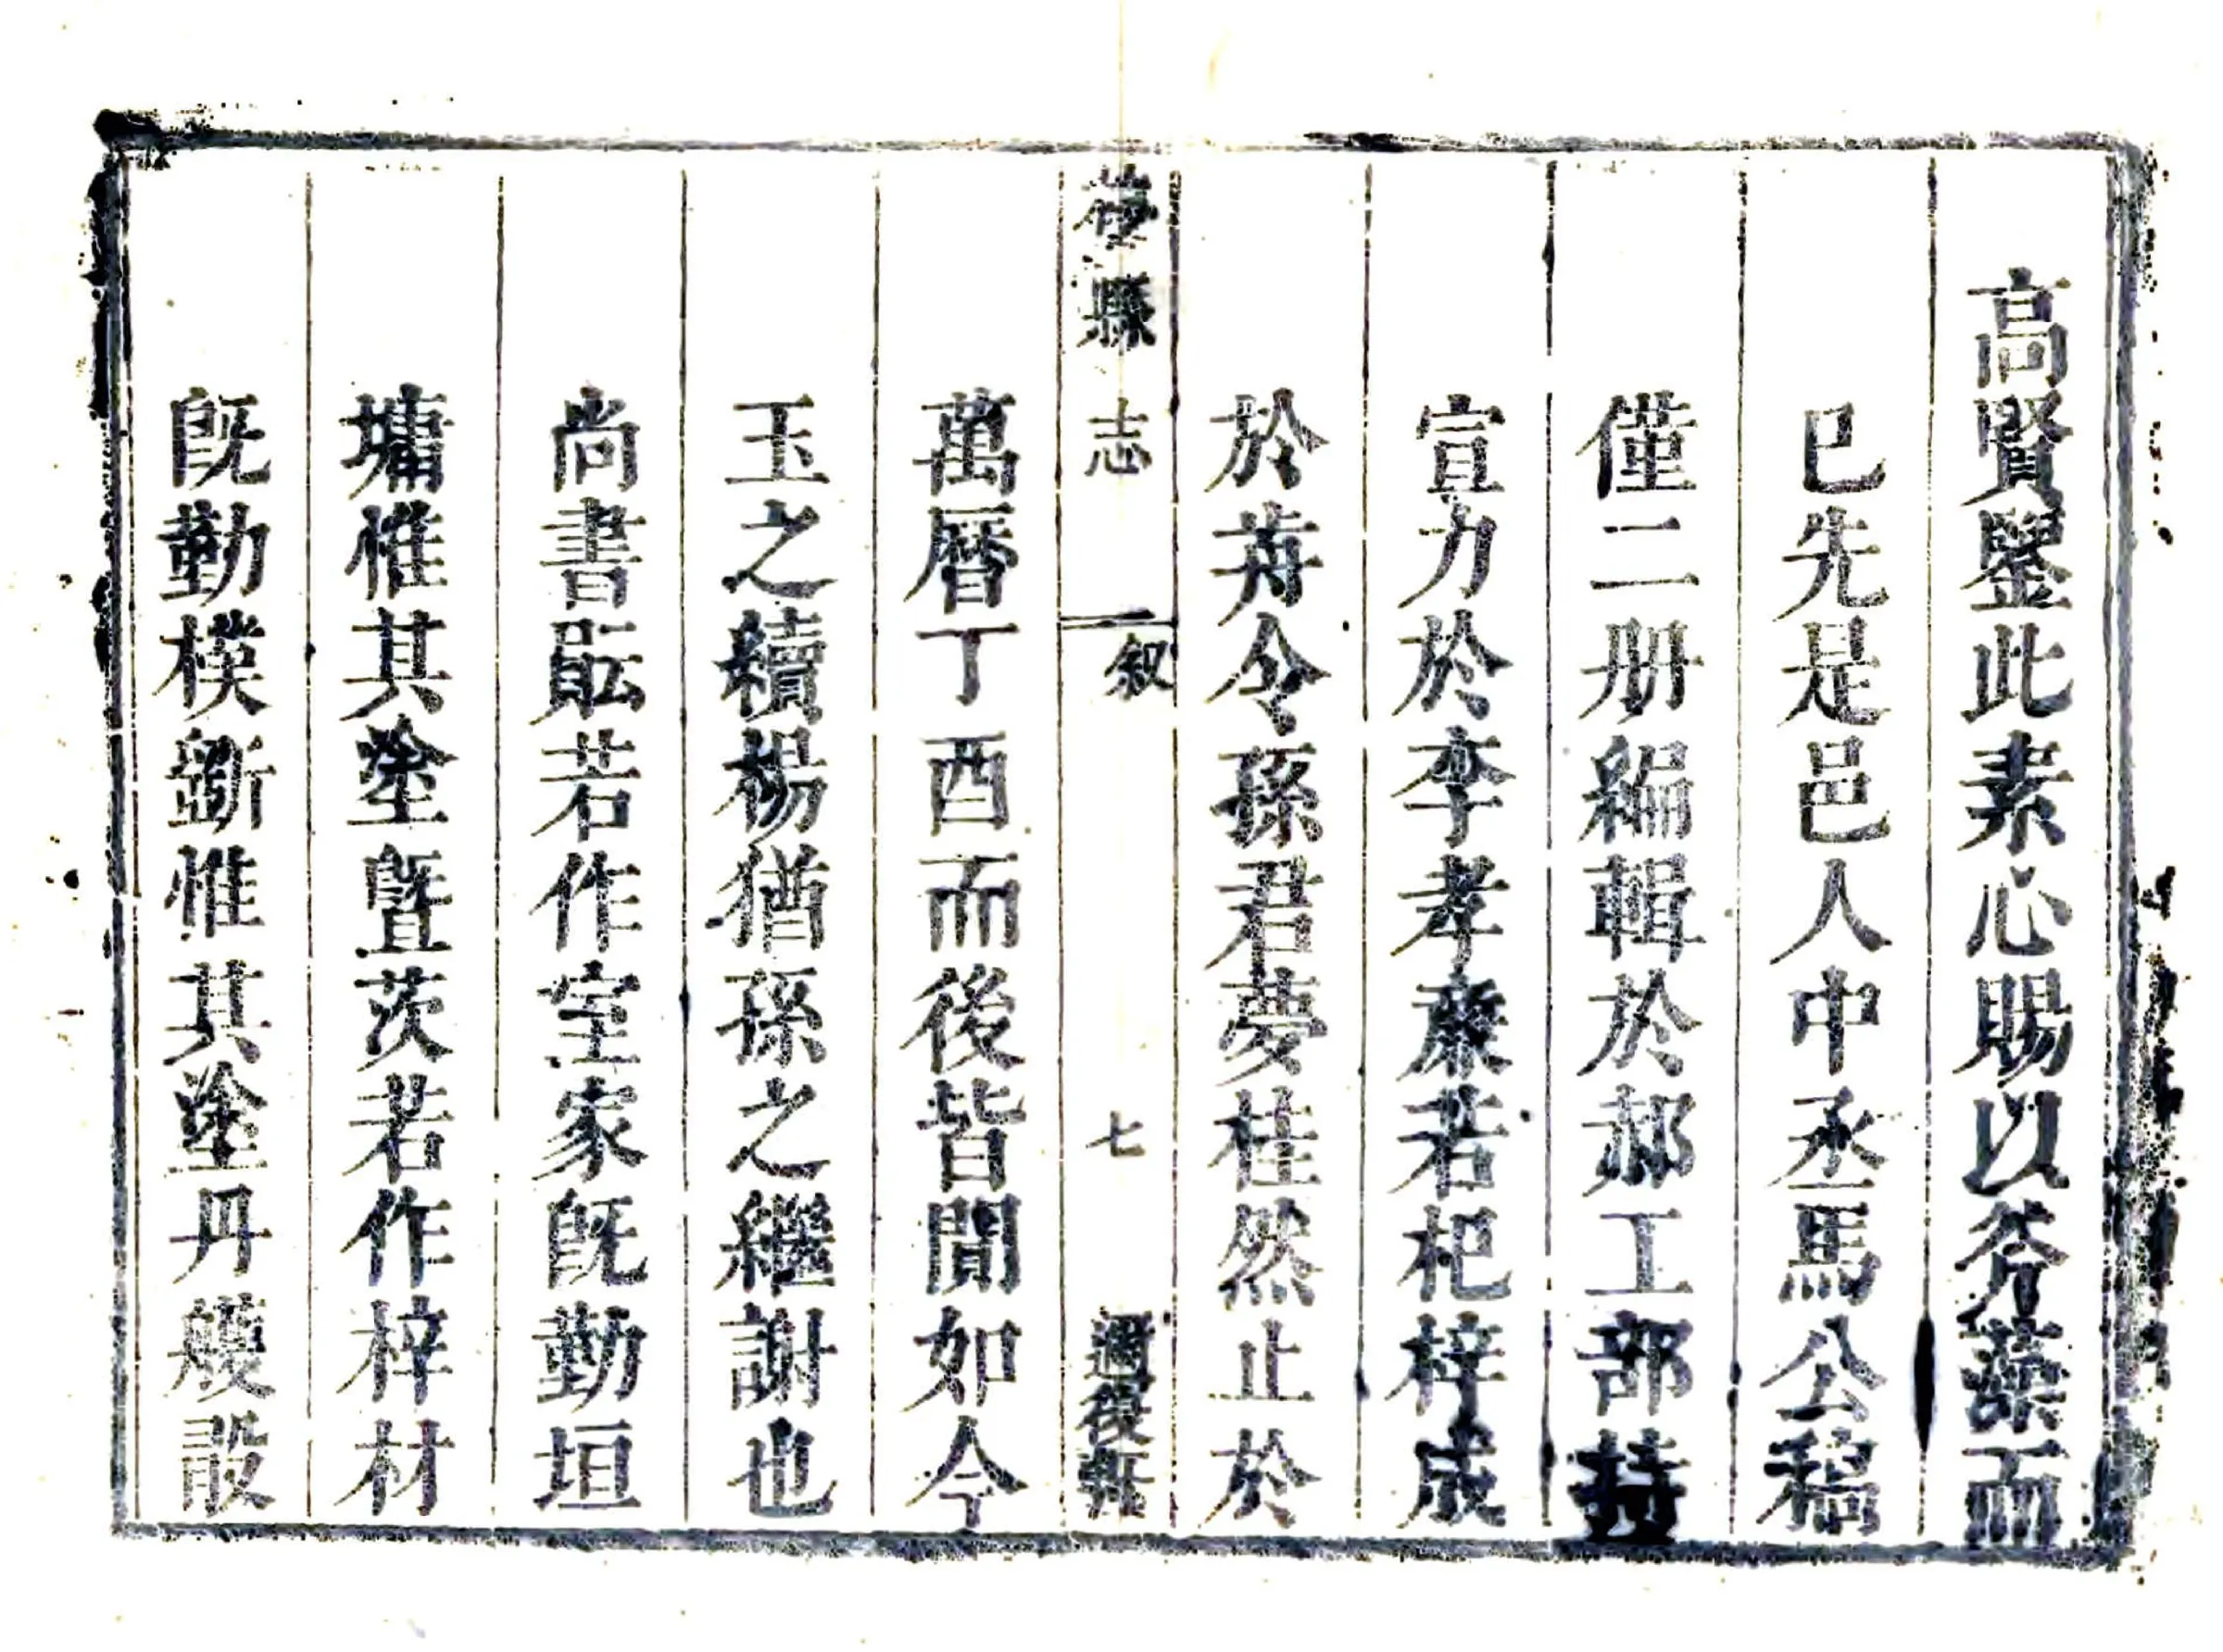 高賢鑒此素心賜以斧藻而
已先是邑人中丞馬公稿
僅二册編輯於郝工部持
宣力於李孝廉若杞梓成
於前令孫君夢桂然止於
縣志
叙
七
萬曆丁酉而後皆聞如今
玉之續楊猶孫之繼謝也
尚書貶若作室家既勤垣
墉惟其塗塈茨若作梓材
既勤樸斵惟其塗丹雘設